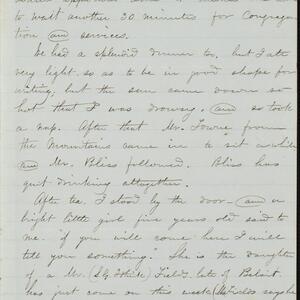 to wait another 30 minutes for Congrega
tion (and) services.
We had a splendid dinner too, but I ate
very light so as to be in good shape for
writing, but the sun came down so
hot that I was drowsy, (and) so took
a nap. After that Mr. Towne from
the Mountains came in to sit awhile
(and) Mr. Bliss followed. Bliss has
quit drinking altogether.
After tea, I stood by the door (and) a
bright little girl five years old said to
me. if you will come here I will
tell you something. She is the daughter
of a Mr. Fields, late of Beloit
has just come on this week (Mr Fields says he